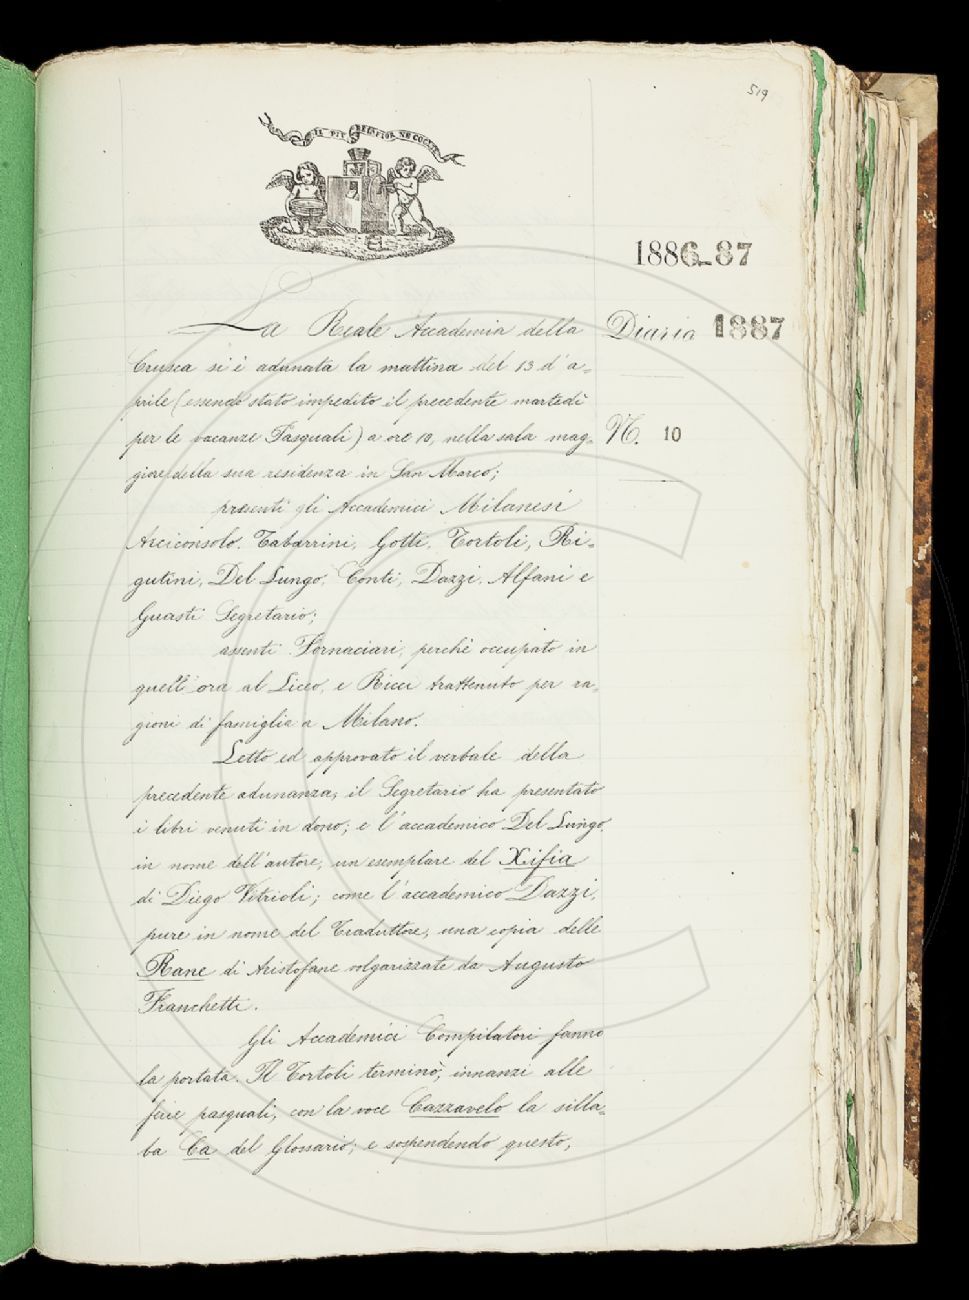 519
IL PIÙ BEL FIOR NE COGLIE
1886-87
La Reale Accademia della
Diaria 1887
Crusca si è adunata la mattina del 13 d'a=
prile (essendo stato impedito il precedente martedì
per le vacanze Pasquali) a ore 10, nella sala mag=
N. 10
giore della sua residenza in San Marco;
presenti gli Accademici Milanesi
Arciconsolo, Tabarrini, Gotti, Tortoli, Ri=
gutini, Del Lungo, Conti, Dazzi, Alfani e
Guasti Segretario;
assenti Fornaciari, perchè occupato in
quell'ora al Liceo, e Ricci trattenuto per ra=
gioni di famiglia a Milano.
Letto ed approvato il verbale della
precedente adunanza, il Segretario ha presentato
i libri venuti in dono; e l'accademico Del Lungo,
in nome dell'autore, un esemplare del Xifia
di Diego Vitrioli; come l'accademico Dazzi,
pure in nome del Traduttore, una copia delle
Rane di Aristofane volgarizzate da Augusto
Franchetti.
Gli Accademici Compilatori fanno
la portata. Il Tortoli terminò, innanzi alle
ferie pasquali, con la voce Cazzavelo la silla=
ba Ca del Glossario; e sospendendo questo,